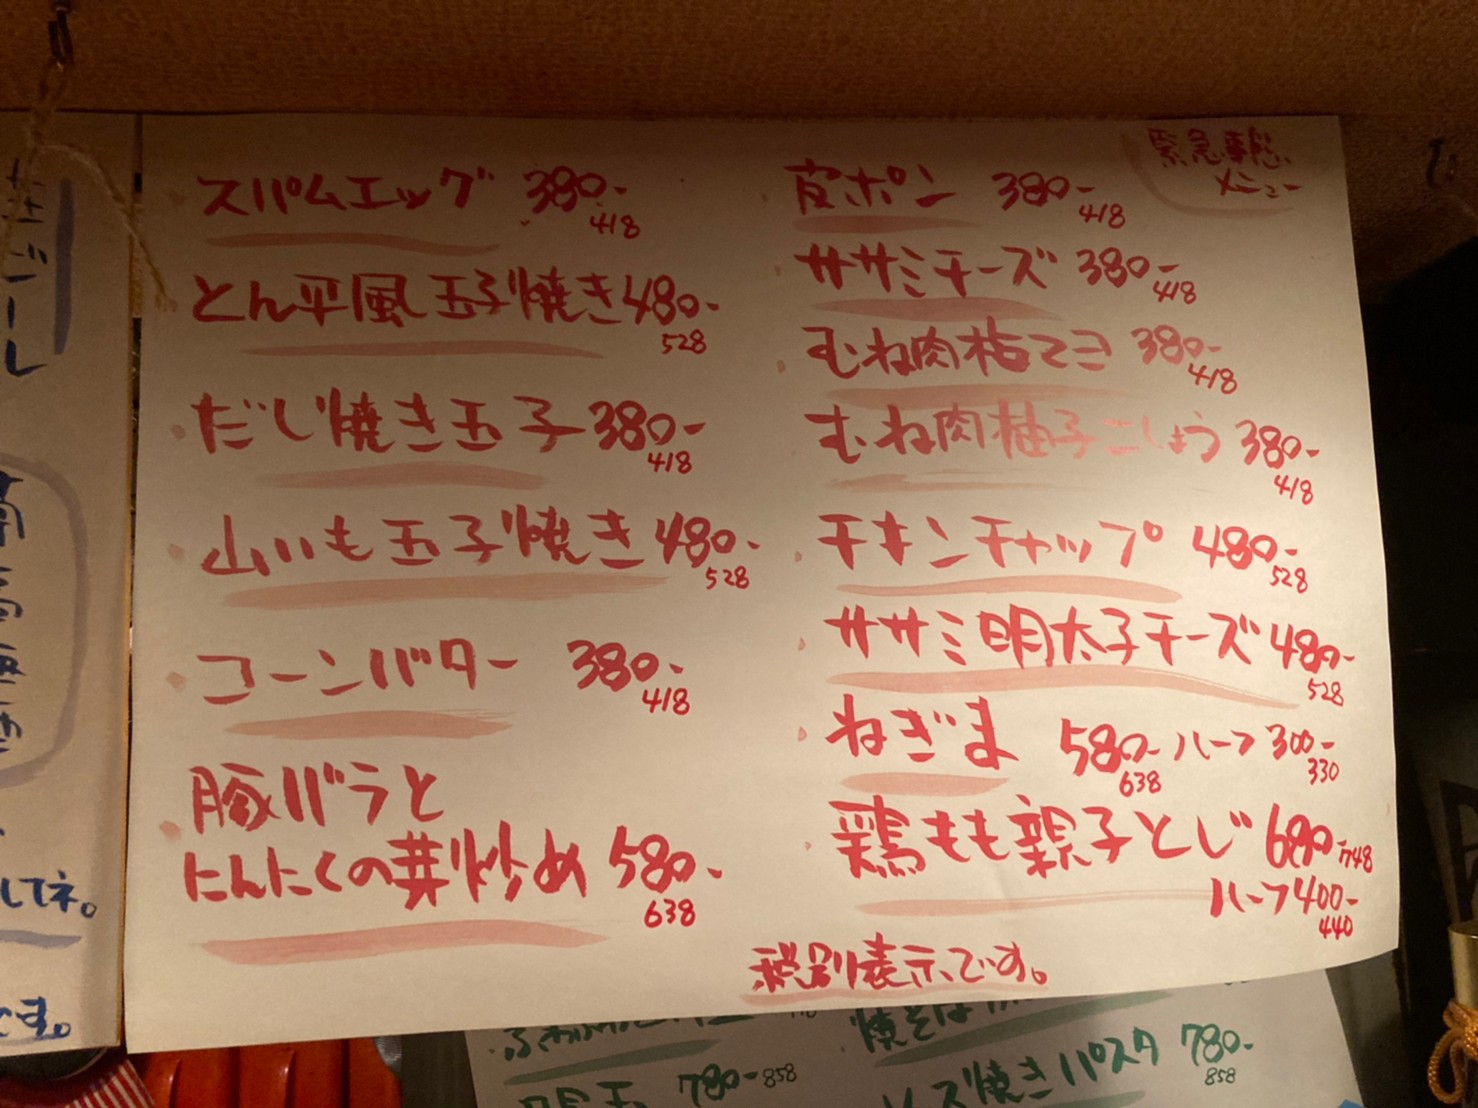 緊急事態
メニュー
スパムエッグ 380-
418
とん平風玉子焼き 480-
528
だし焼き玉子 380-
418
山いも玉子焼き 480-
528
コーンバター 380-
418
豚バラと
にんにくの芽炒め 580-
638
皮ポン 380-
418
ササミチーズ 380-
418
むね肉梅てき 380-
418
むね肉柚子こしょう 380-
418
チキンチャップ 480-
528
ササミ明太子チーズ 480-
528
ねぎま 580- ハーフ 300-
638 330
鶏もも親子とじ 680-748
ハーフ400-
440
税別表示です。
してネ。
です。
780-858
焼きパスタ 780-
858